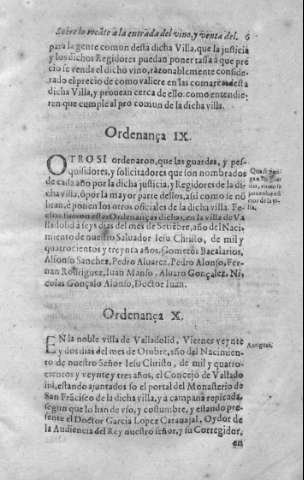 Sobre lo tocãte à la entrada del vino, y venta del. 6
para la gente comun desta dicha Villa, que la justicia
y los dichos Regidores puedan poner tassa à que pre
cio se venda el dicho vino, razonablemente conside-
rado el precio de como valiere en las comarcas desta
dicha Villa, y prouean cerca de ello: como entendie-
ren que cumple al pro comun de la dicha villa.
Ordenança IX.
OTROSI ordenaron, que las guardas, y pes-
quisidores, y solicitadores que son nombrados
de cada año por la dicha justicia, y Regidores de la di
cha villa, ò por la mayor parte dellos, assi como se nõ
bran, è ponen los otros oficiales de la dicha villa. Fe-
chas fueron estas Ordenanças dichas, en la villa de Va
lladolid à seys dias del mes de Setiẽbre, año del Naci-
miento de nuestro Saluador Iesu Christo, de mil y
quatrocientos y treynta años, Gomecio Bacalarius,
Alfonso Sanchez, Pedro Aluarez, Pedro Alonso, Fer-
nan Rodriguez, Iuan Manso, Aluaro Gonçalez, Ni-
colas Gonçalo Alonso, Doctor Iuan.
Ordenança X.
EN la noble villa de Valladolid, Viernes veynte
Antigua.
y dos dias del mes de Otubre, año del Nacimien-
to de nuestro Señor Iesu Christo, de mil y quatro-
cientos y veynte y tres años, el Concejo de Vallado
lid, estando ajuntados so el portal del Monasterio de
San Frãcisco de la dicha villa, y à campana repicada,
segun que lo han de vso, y costumbre, y estando pre-
sente el Doctor Garcia Lopez Carauajal, Oydor de
la Audiencia del Rey nuestro señor, y su Corregidor,
en